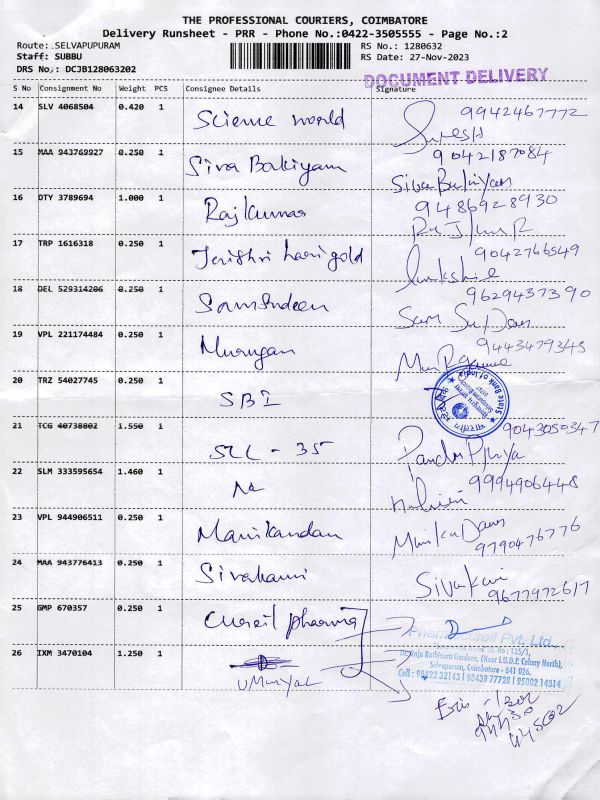 THE PROFESSIONAL COURIERS, COIMBATORE
Delivery Runsheet - PRR - Phone No.:0422-3505555 - Page No.:2
Route: SELVAPUPURAM
Staff: SUBBU
DRS No.: DCJB128063202
RS No.: 1280632
RS Date: 27-Nov-2023
DOCUMENT DELIVERY
S No Consignment No Weight PCS Consignee Details Signature
14 SLV 4068504 0.420 1 Science world Suresh 9942467772
15 MAA 943769927 0.250 1 Siva Bakiyam 9042187084
16 DTY 3789694 1.000 1 Rajkumar 9486928930
17 TRP 1616318 0.250 1 gold 9042766549
18 DEL 529314206 0.250 1 9629437390
19 VPL 221174484 0.250 1 Murugan 9443479345
20 TRZ 54027745 0.250 1 SBI
State Bank of India
21 TCG 40738802 1.550 1 SLL - 35 9043050347
22 SLM 333595654 1.460 1 9994906448
23 VPL 944906511 0.250 1 Manikandan 9790476776
24 MAA 943776413 0.250 1 Sivakami Sivakami 9677972617
25 GMP 670357 0.250 1 pharma
Pvt. Ltd.,
No : 135/1,
Raja Rathinam Gardens, (Near I.U.D.P. Colony North),
Selvapuram, Coimbatore - 641 026.
Cell : 98422 32143 | 98439 77728 | 95002 14314
26 IXM 3470104 1.250 1